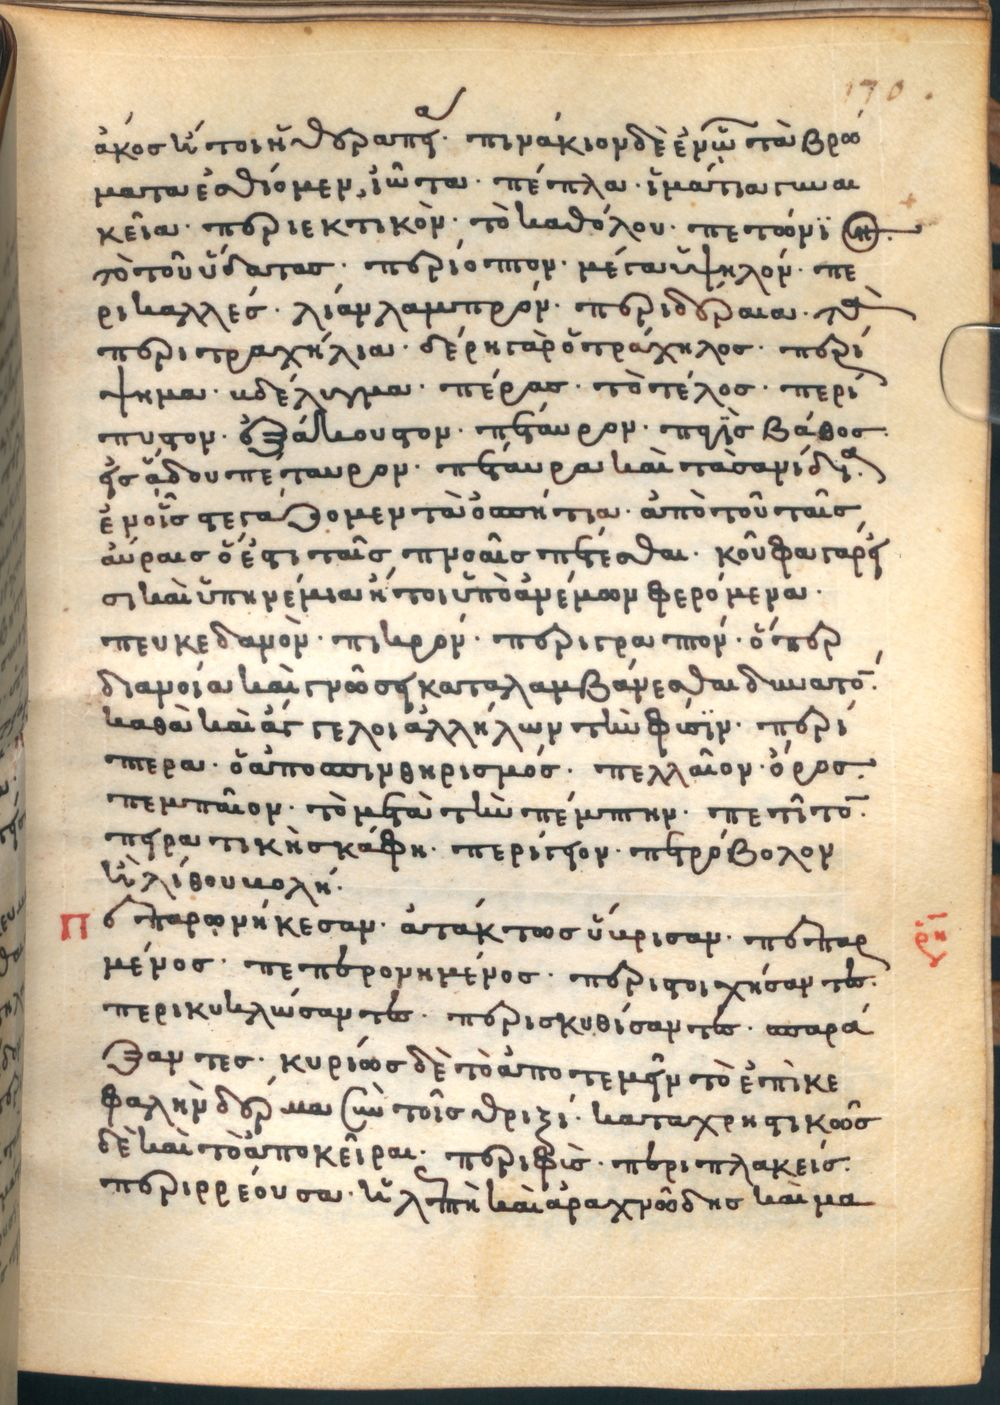 170.
ἄκος ἤτοι ἡ θεραπεία· πινάκιον δὲ ἐν ᾧ τὰ βρώ
ματα ἐσθίομεν, ἰῶτα· πέπλα· ἱμάτια γυναι
κεῖα· περιεκτικὸν· τὸ καθόλου·
τὸ τοῦ ὕδατος· μέγα ὑψηλόν· πε
ρικαλλές· λίαν λαμπρόν· περιδέραια· τὰ
περιτραχήλια· δέρη γὰρ ὁ τράχηλος· περί
ψημα· βδέλυγμα· πέρας· τὸ τέλος· περί
πυστον· ἐξάκουστον· πέταυρον· βάθος·
εἰς ᾅδου πέταυρον· πέταυρα καὶ τὰ σανίδια·
ἐν οἷς τὰ ὀσπήτια· ἀπὸ τοῦ ταῖς
αὔραις ὅ ἐστι ταῖς πνοαῖς πέτεσθαι· κοῦφα γάρ εἰ
σι καὶ ὑπηνέμια ἤτοι ὑπὸ ἀνέμων φερόμενα·
πευκεδανὸν· πικρόν· ὅπερ
διανοία καὶ γνώσει καταλαμβάνεσθαι δυνατὸν·
καθὰ καὶ ἄγγελοι ἀλλήλων τὴν φύσιν· περί
πτερα· ὁ ἀποσπινθηρισμός· πελλαῖον· ὄρος·
πεμπταῖον· τὸ μετὰ τὴν πέμπτην·
πειρατικὴ σκάφη· περίστεον· πετρόβολον
ἢ λίθου βολή·
Π επαρῳνήκεσαν· ἀτάκτως ὕβρισαν· πεπαρ
μένος· πεπερονημένος· περιστοιχήσαντες·
περικυκλώσαντες· περισκυθίσαντες· σπαρά
ξαντες· κυρίως δὲ τὸ ἀποτεμεῖν τὸ ἐπὶ κε
φαλὴν δέρμα σὺν τοῖς θριξί· καταχρηστικῶς
δὲ καὶ τὸ ἀποκεῖραι· περιφὺς· περιπλακείς·
περιρρέουσα· ἡ λεπτὴ καὶ ἀραχνώδης καὶ μα